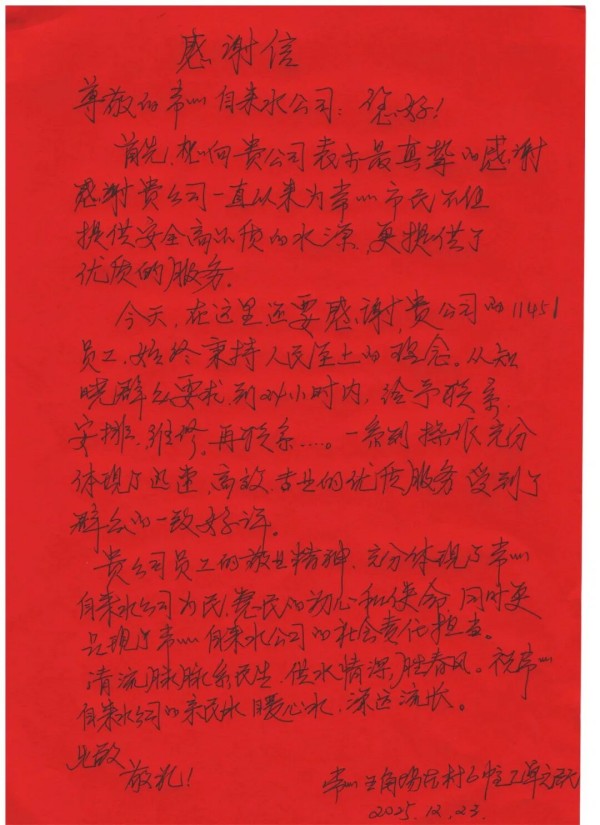 感谢信
尊敬的常州自来水公司：您好！
首先，想向贵公司表示最真挚的感谢
感谢贵公司一直以来为常州市民不但
提供安全高品质的水源，更提供了
优质的服务。
今天，在这里还要感谢，贵公司的11451
员工，始终秉持人民至上的理念。从知
晓群众要求，到24小时内，给予联系，
安排、维修，再联系……。一系列操作充分
体现了迅速、高效、专业的优质服务 受到了
群众的一致好评。
贵公司员工的敬业精神，充分体现了常州
自来水公司为民、惠民的初心和使命，同时更
呈现了常州自来水公司的社会责任担当。
清流脉脉系民生，供水情深胜春风。祝常州
自来水公司的亲民水 暖心水，深远流长。
此致
敬礼！
常州 村 单元
2025.12.23.